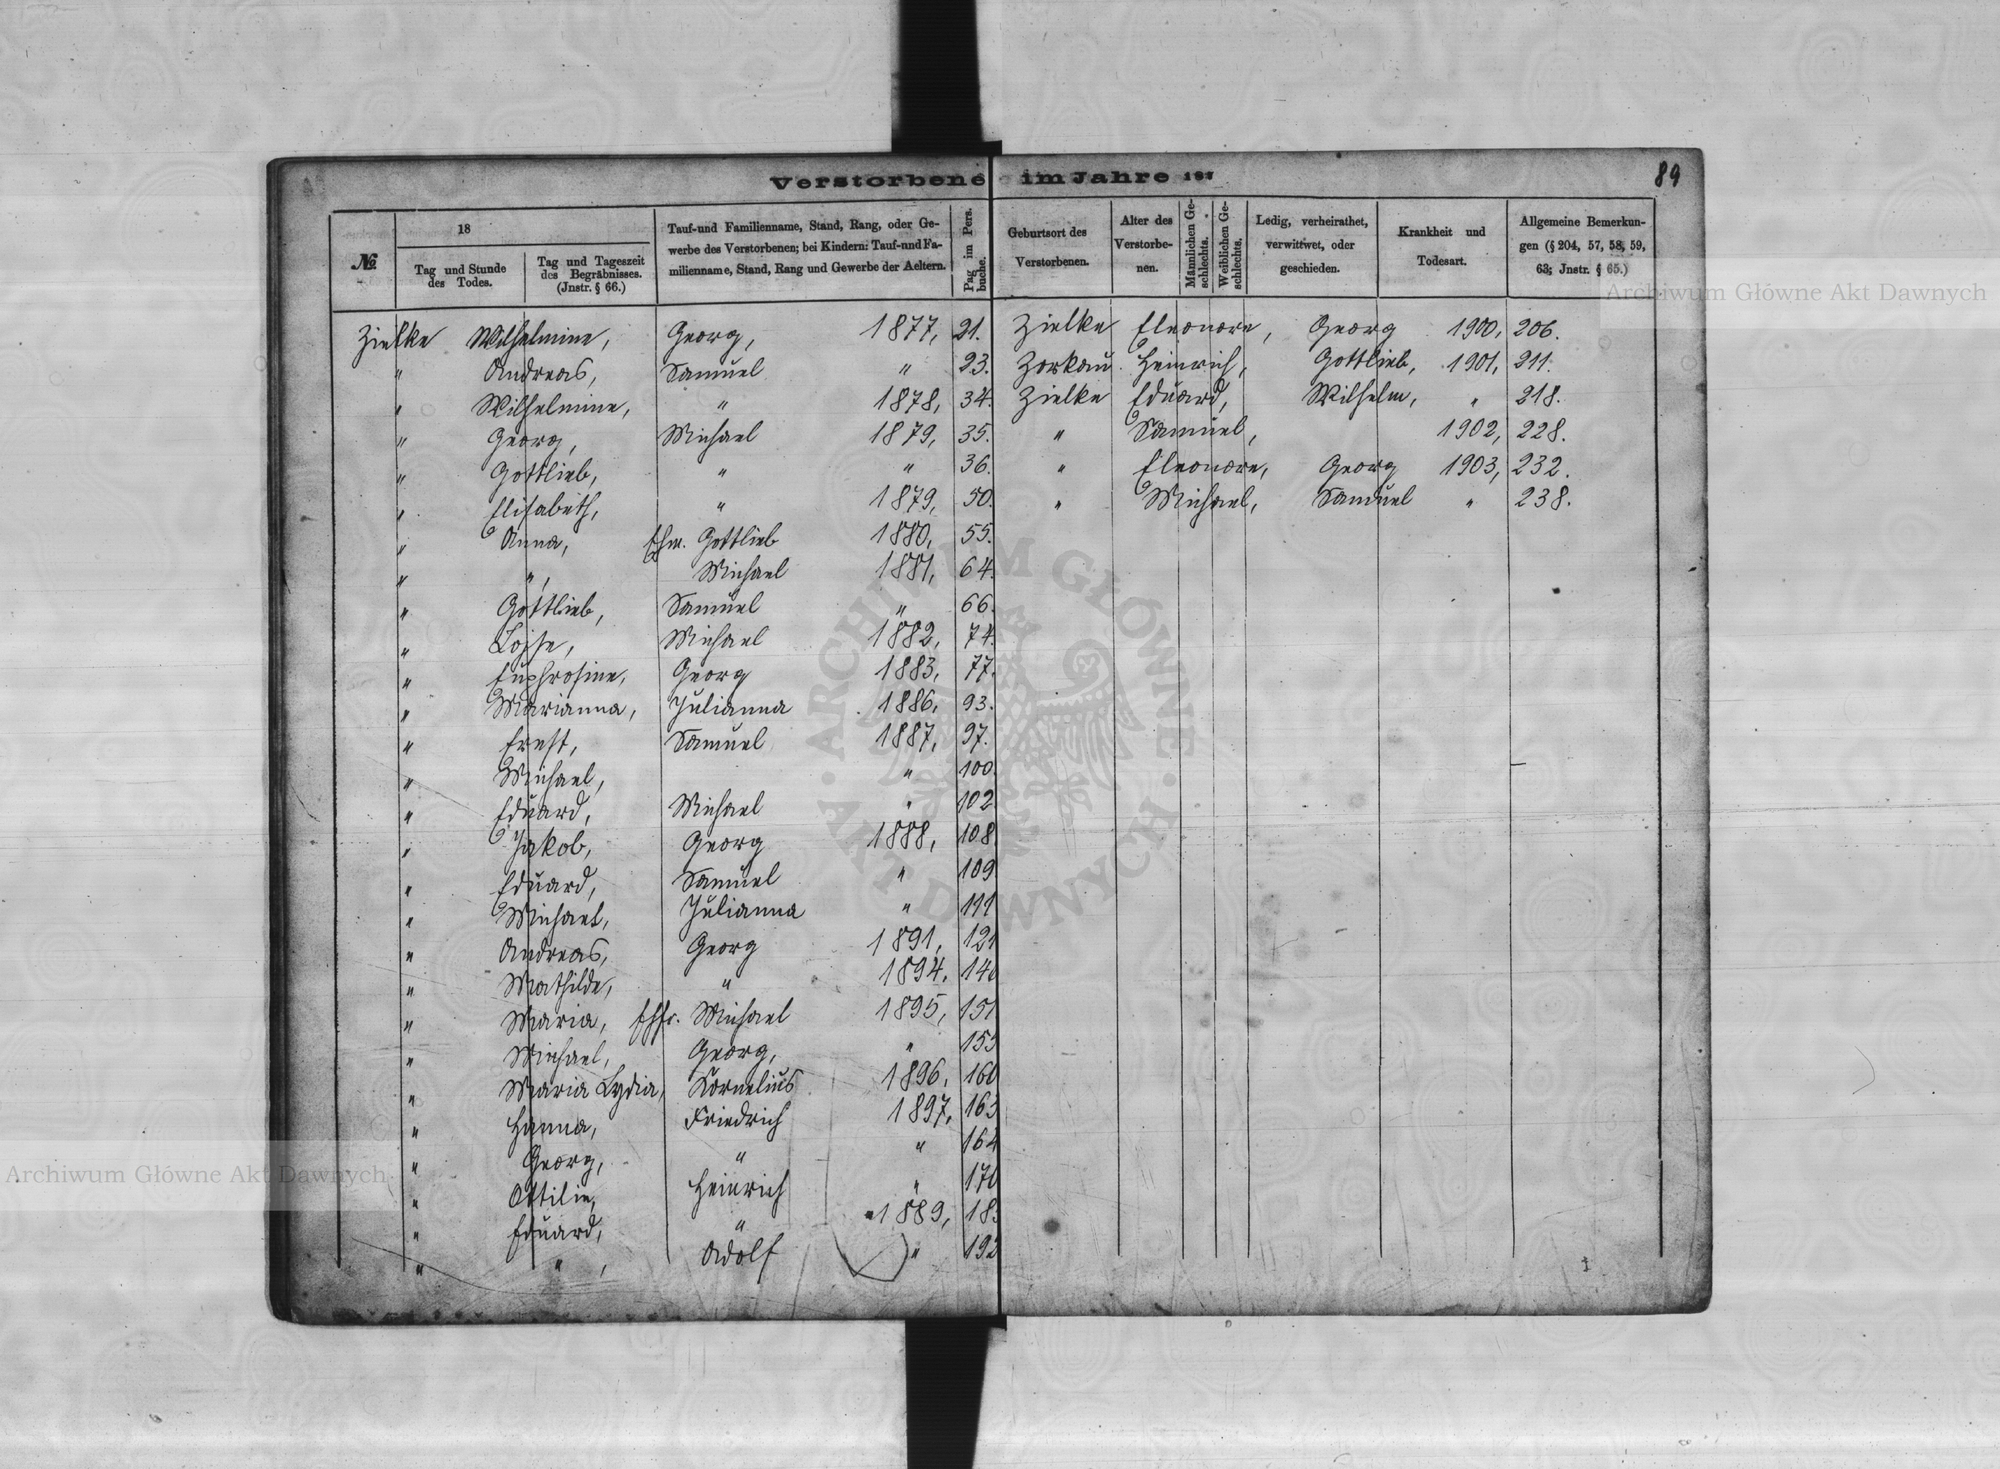 Verstorbene im Jahre 187
89
№
18
Tag und Stunde des Todes.
Tag und Tageszeit des Begräbnisses. (Jnstr. § 66.)
Tauf-und Familienname, Stand, Rang, oder Ge-
werbe des Verstorbenen; bei Kindern: Tauf-und Fa-
milienname, Stand, Rang und Gewerbe der Aeltern.
Pag im Pers. buche.
Geburtsort des Verstorbenen.
Alter des Verstorbe-nen.
Männlichen Ge-schlechts.
Weiblichen Ge-schlechts.
Ledig, verheirathet, verwittwet, oder geschieden.
Krankheit und Todesart.
Allgemeine Bemerkun-
gen (§ 204, 57, 58, 59,
63; Jnstr. § 65.)
Zielke Wilhelmine, Georg, 1877, 21.
" Andreas, Samuel " 23.
" Wilhelmine, " 1878, 34.
" Georg, Michael 1879, 35.
" Gottlieb, " " 36.
" Elisabeth, " 1879, 50.
" Anna, Ehw. Gottlieb 1880, 55.
" ", Michael 1881, 64.
" Gottlieb, Samuel " 66.
" Lojse, Michael 1882, 74.
" Euphrosine, Georg 1883, 77.
" Marianna, Julianna 1886, 93.
" Ernst, Samuel 1887, 97.
" Michael, " 100.
" Eduard, Michael " 102
" Jakob, Georg 1888, 108
" Eduard, Samuel " 109
" Michael, Julianna " 111
" Andreas, Georg 1891, 121
" Mathilde, " 1894, 140
" Maria, Ehfr. Michael 1895, 151
" Michael, Georg, " 153
" Maria Lydia, Kornelius 1896, 160
" Hanna, Friedrich 1897, 163
" Georg, " " 164
" Ottilie, Heinrich " 170
" Eduard, " 1889, 183
" ", Adolf " 192
Zielke Eleonore, Georg 1900, 206.
Zorkau Heinrich, Gottlieb, 1901, 211.
Zielke Eduard, Wilhelm, " 218.
" Samuel, 1902, 228.
" Eleonore, Georg 1903, 232.
" Michael, Samuel " 238.
Archiwum Główne Akt Dawnych
Archiwum Główne Akt Dawnych
ARCHIWUM GŁÓWNE AKT DAWNYCH